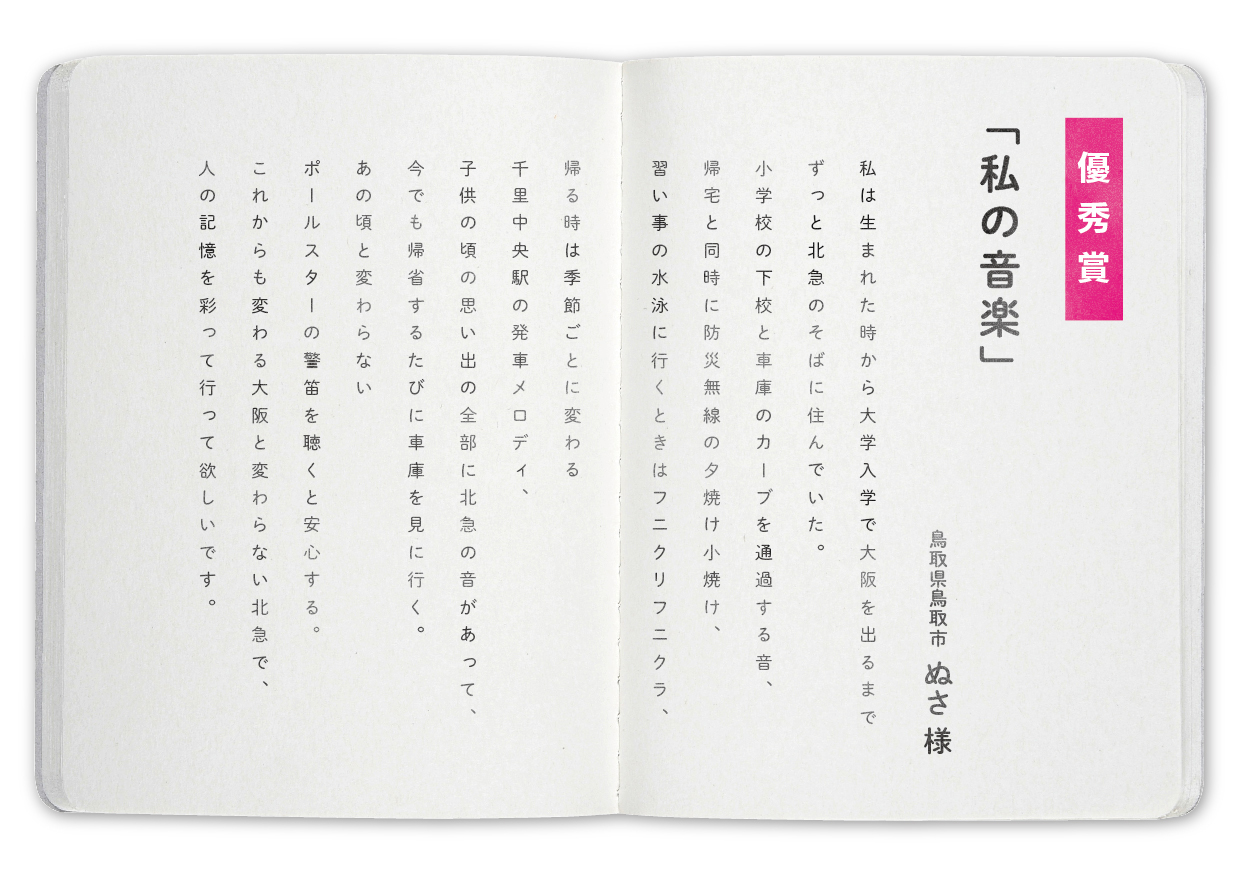 優秀賞
「私の音楽」
鳥取県鳥取市 ぬさ 様
私は生まれた時から大学入学で大阪を出るまで
ずっと北急のそばに住んでいた。
小学校の下校と車庫のカーブを通過する音、
帰宅と同時に防災無線の夕焼け小焼け、
習い事の水泳に行くときはフニクリフニクラ、
帰る時は季節ごとに変わる
千里中央駅の発車メロディ、
子供の頃の思い出の全部に北急の音があって、
今でも帰省するたびに車庫を見に行く。
あの頃と変わらない
ポールスターの警笛を聴くと安心する。
これからも変わる大阪と変わらない北急で、
人の記憶を彩って行って欲しいです。